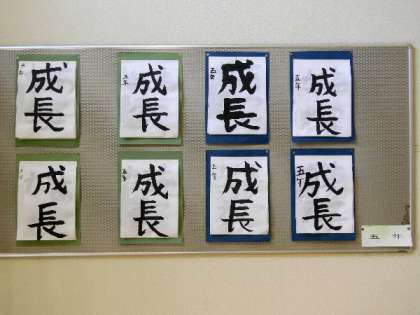 成長
五年
成長
五年
成長
五年
成長
成長
成長
五年
成長
五年
成長
五年
五年